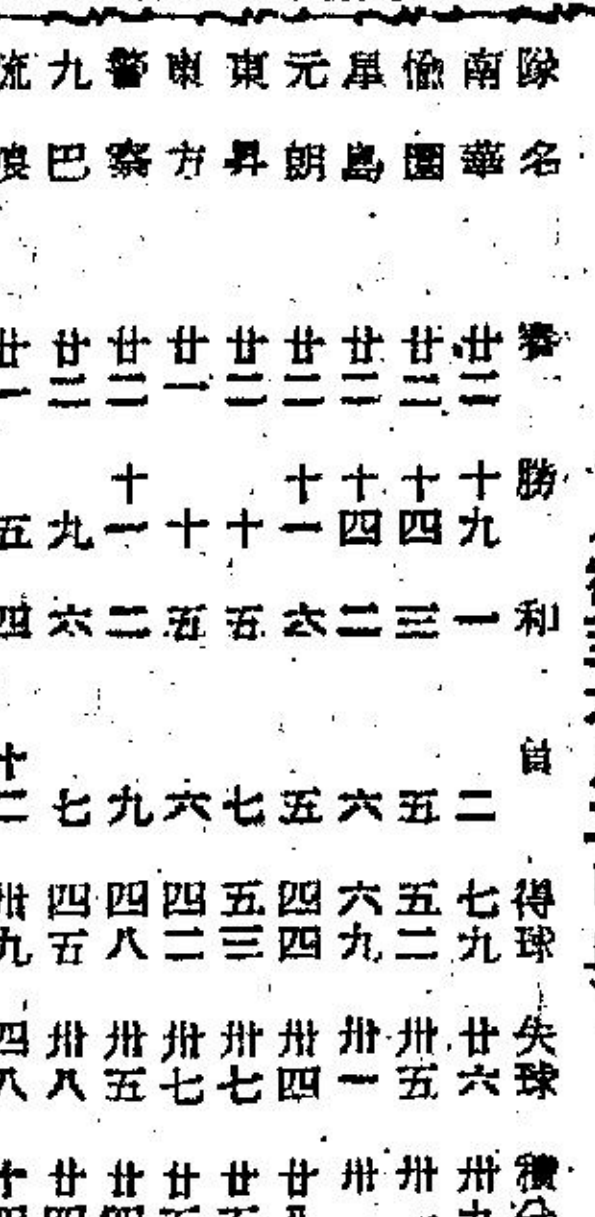 隊名 賽 勝 和 負 得球 失球 積分
南華 廿二 十九 一 二 七九 廿六 卅九
愉園 廿二 十四 三 五 五二 卅五 卅一
星島 廿二 十四 二 六 六九 卅一 卅
元朗 廿二 十一 六 五 四四 卅四 廿八
東昇 廿二 十 五 七 五三 卅七 廿五
東方 廿一 十 五 六 四二 卅七 廿五
警察 廿二 十一 二 九 四八 卅五 廿四
九巴 廿二 九 六 七 四五 卅八 廿四
流浪 廿一 五 四 十二 卅九 四八 十四